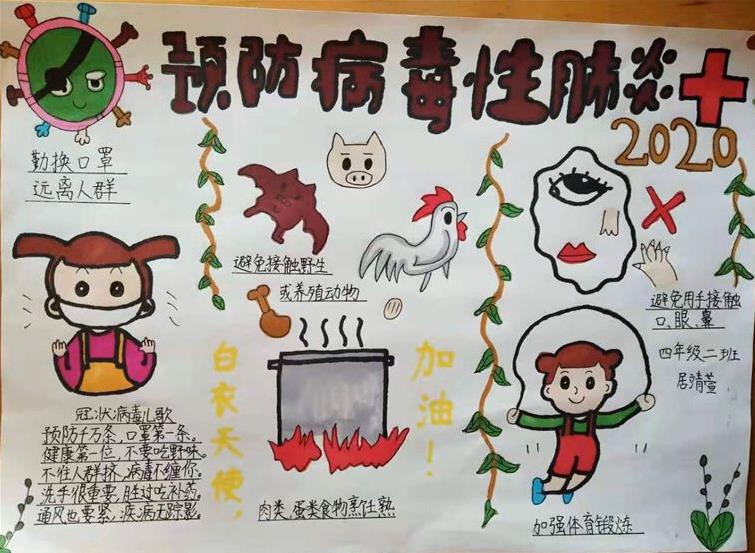 预防病毒性肺炎
2020
勤换口罩
远离人群
避免接触野生
或养殖动物
避免用手接触
口、眼、鼻
四年级二班
居清萱
白衣天使，
加油！
冠状病毒儿歌
预防千万条，口罩第一条。
健康第一位，不要吃野味。
不往人群挤，病毒不缠你。
洗手很重要，胜过吃补药。
通风也要紧，疾病无踪影。
肉类、蛋类食物烹饪熟
加强体育锻炼